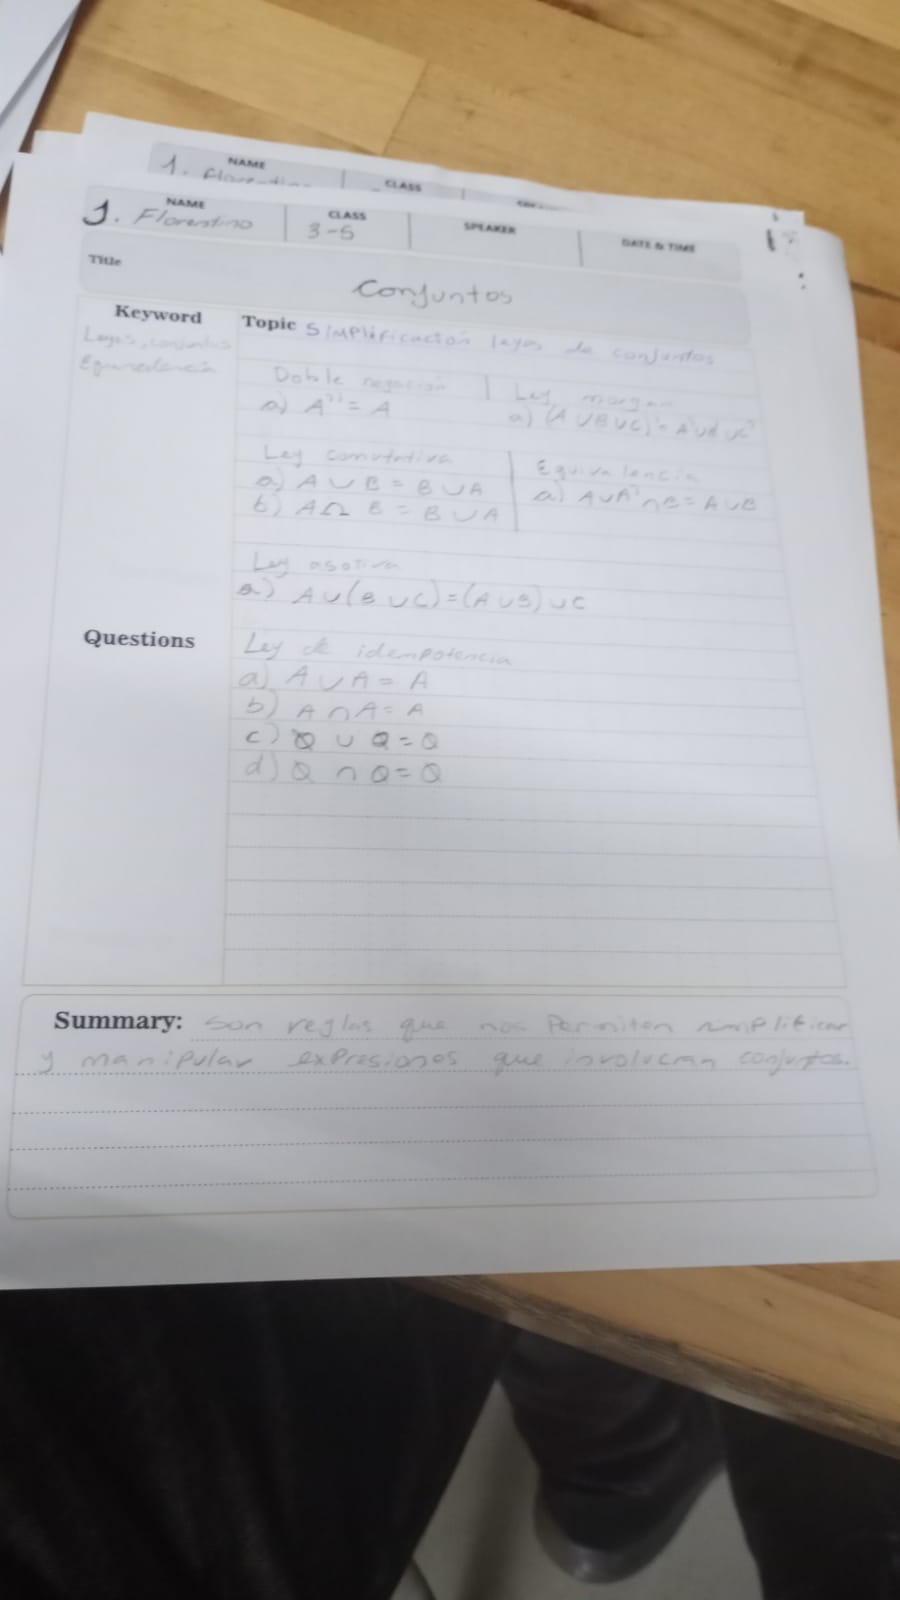 NAME
1. Florentino
CLASS
NAME
1. Florentino
CLASS
3-5
SPEAKER
DATE & TIME
Title
Conjuntos
Keyword
Leyes, conjuntos
Equivalencia
Topic Simplificación leyes de conjuntos
Doble negación
a) A'' = A
Ley morgan
a) (A ∪ B ∪ C)' = A' ∪ B' ∪ C'
Ley conmutativa
a) A ∪ B = B ∪ A
b) A ∩ B = B ∪ A
Equivalencia
a) A ∪ A' ∩ B = A ∪ B
Ley asotiva
a) A ∪ (B ∪ C) = (A ∪ B) ∪ C
Questions
Ley de idempotencia
a) A ∪ A = A
b) A ∩ A = A
c) Q ∪ Q = Q
d) Q ∩ Q = Q
Summary: Son reglas que nos Permiten simplificar
y manipular expresiones que involucran conjuntos.